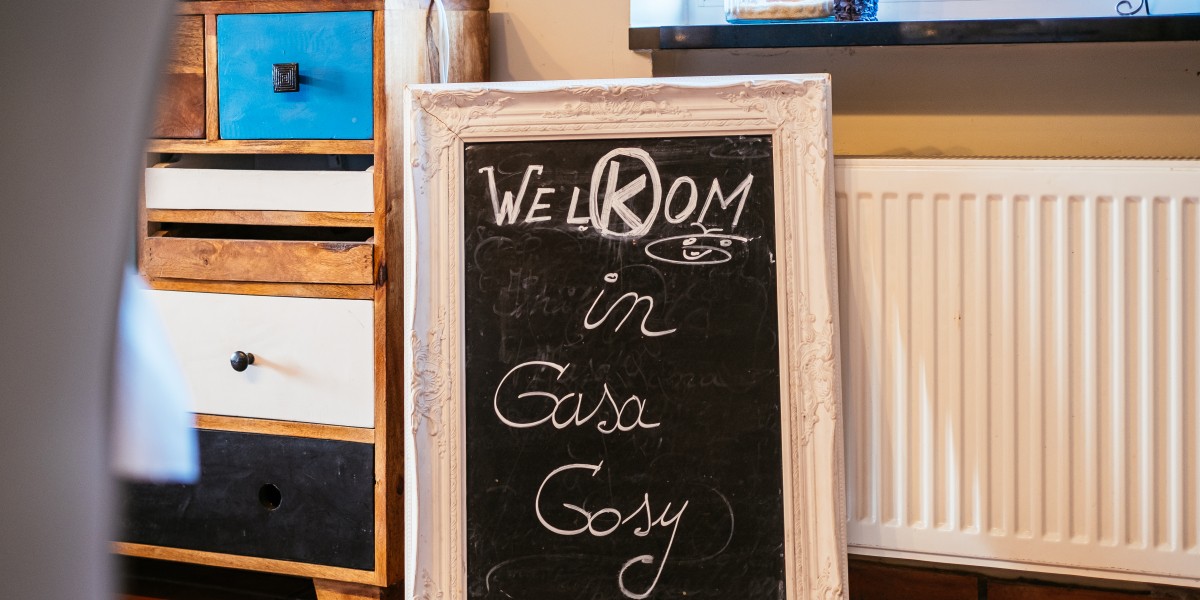 WELKOM
in
Casa
Cosy